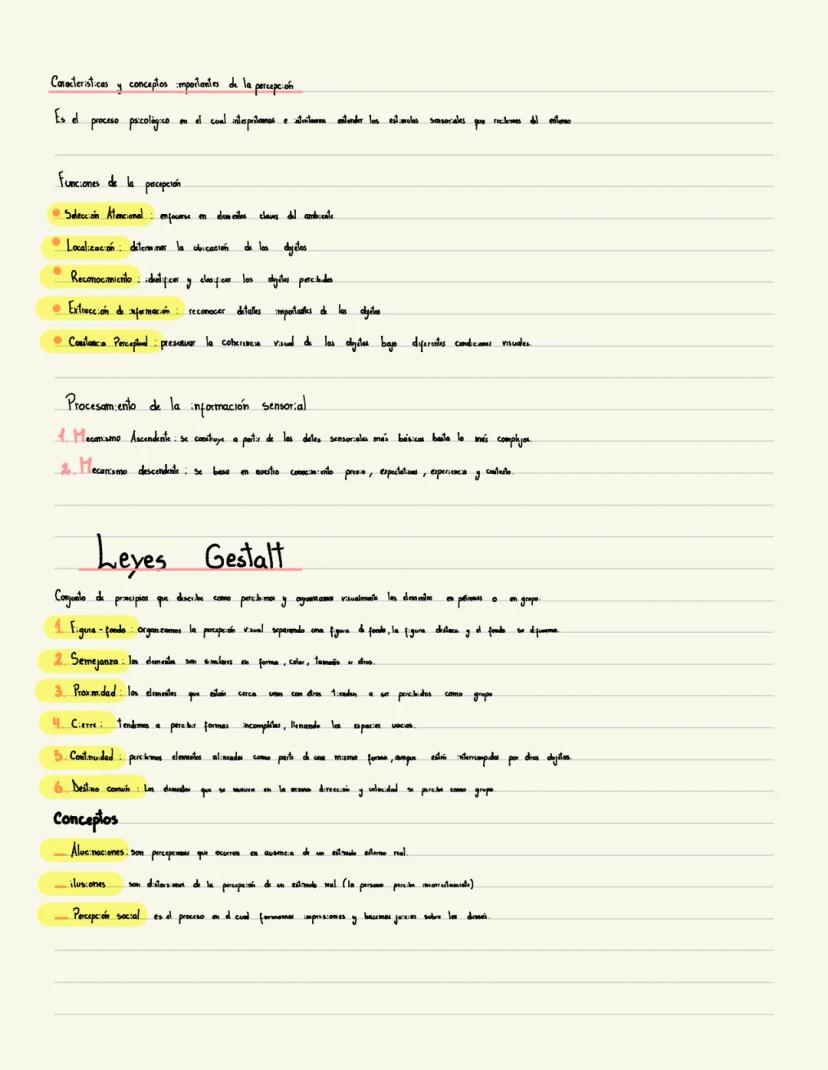 Características y conceptos importantes de la percepción
Es el proceso psicológico en el cual interpretamos e intentamos entender los estímulos sensoriales que recibimos del entorno
Funciones de la percepción
• Selección Atencional : enfocarse en elementos claves del ambiente
• Localización : determinar la ubicación de los objetos
• Reconocimiento : identificar y clasificar los objetos percibidos
• Extracción de información : reconocer detalles importantes de los objetos
• Constancia Perceptual : preservar la coherencia visual de los objetos bajo diferentes condiciones visuales.
Procesamiento de la información sensorial
1. Mecanismo Ascendente : se construye a partir de los datos sensoriales más básicos hasta lo más complejos.
2. Mecanismo descendente : se basa en nuestro conocimiento previo, expectativas, experiencia y contexto.
Leyes Gestalt
Conjunto de principios que describe como percibimos y organizamos visualmente los elementos en patrones o en grupo.
1. Figura - fondo : organizamos la percepción visual separando una figura de fondo, la figura destaca y el fondo se difumina.
2. Semejanza : los elementos son similares en forma, color, tamaño u otros.
3. Proximidad : los elementos que están cerca unos con otros tienden a ser percibidos como grupo
4. Cierre : tendemos a percibir formas incompletas, llenando los espacios vacios.
5. Continuidad : percibimos elementos alineados como parte de una misma forma, aunque estén interrumpidos por otros objetos.
6. Destino común : Los elementos que se mueven en la misma dirección y velocidad se percibe como grupo
Conceptos
— Alucinaciones : son percepciones que ocurren en ausencia de un estímulo externo real.
— ilusiones son distorsiones de la percepción de un estímulo real (la persona percibe incorrectamente)
— Percepción social es el proceso en el cual formamos impresiones y hacemos juicios sobre los demás.